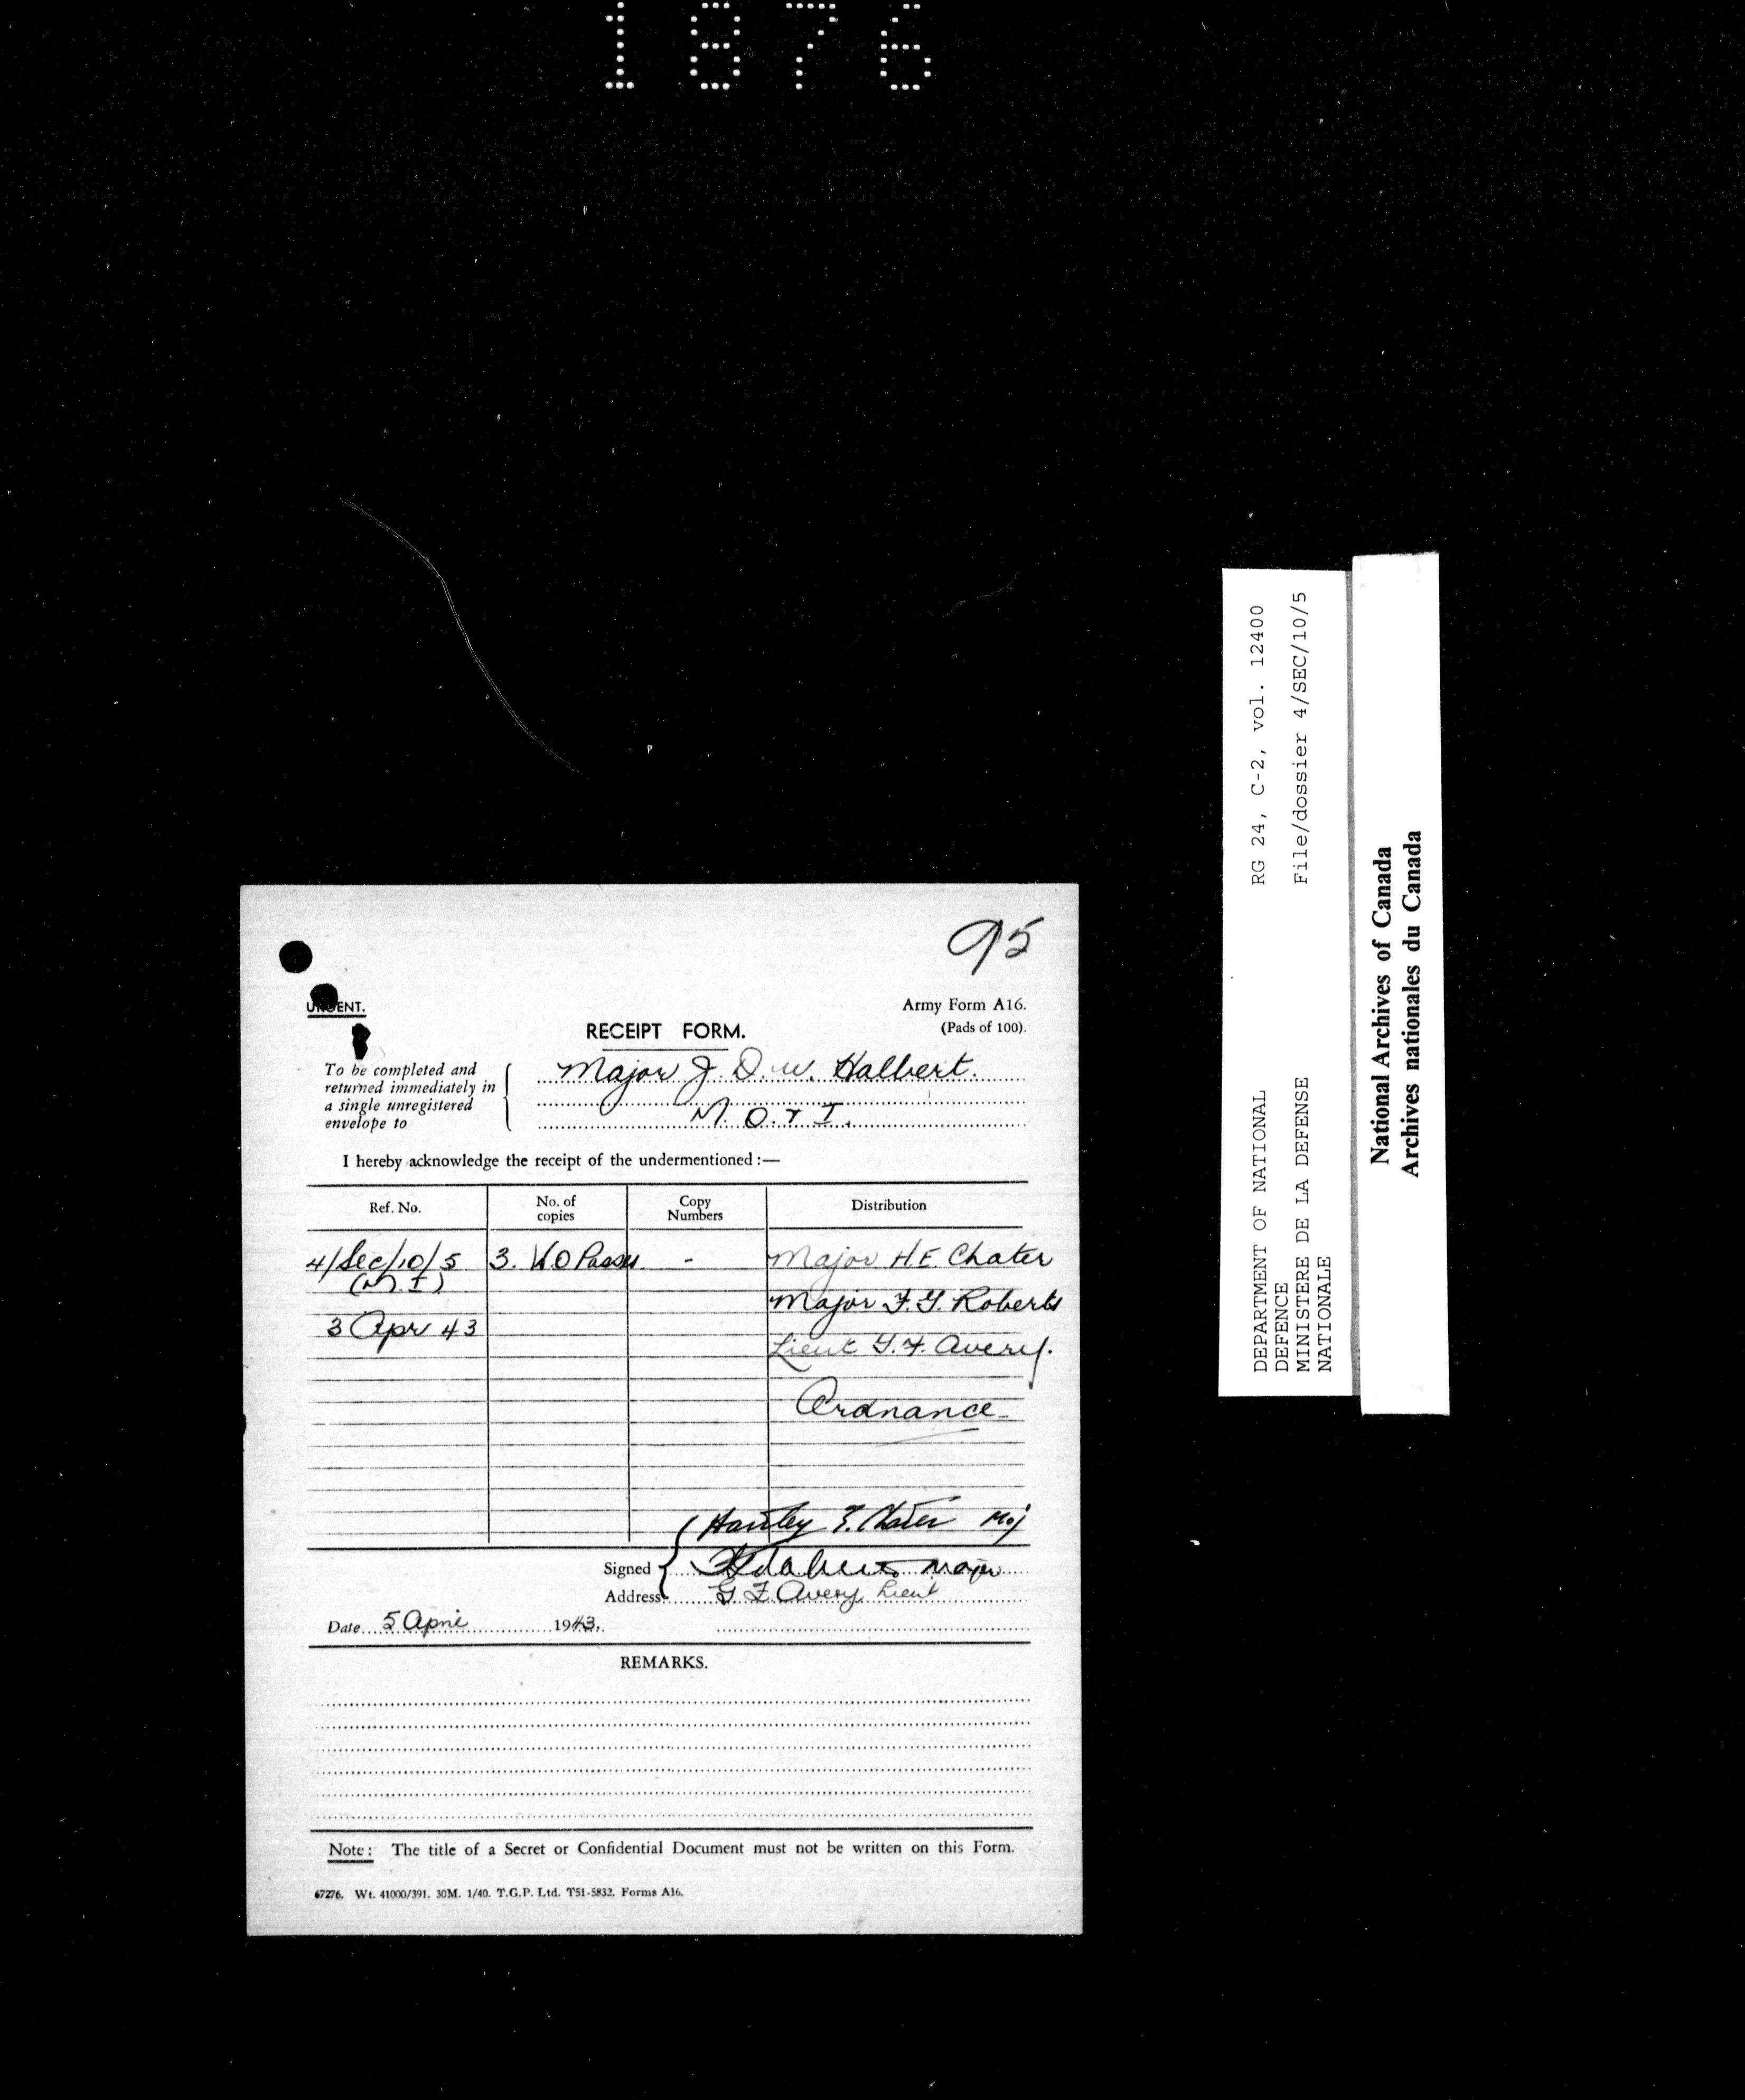 1876
95
URGENT.
Army Form A16.
(Pads of 100).
RECEIPT FORM.
To be completed and
returned immediately in
a single unregistered
envelope to
Major J. D. W. Halbert.
M. O. & I.
I hereby acknowledge the receipt of the undermentioned :—
Ref. No. No. of copies Copy Numbers Distribution
4/Sec/10/5 3. WO Passes - Major H.E. Chater
(M.I) Major F.G. Roberts
3 Apr 43 Lieut G.F. Avery.
Ordnance
Hartley E. Chater Maj
Signed Major
Address G F Avery Lieut
Date 5 April 1943.
REMARKS.
Note: The title of a Secret or Confidential Document must not be written on this Form.
67276. Wt. 41000/391. 30M. 1/40. T.G.P. Ltd. T51-5832. Forms A16.
DEPARTMENT OF NATIONAL RG 24, C-2, vol. 12400
DEFENCE
MINISTERE DE LA DEFENSE File/dossier 4/SEC/10/5
NATIONALE
National Archives of Canada
Archives nationales du Canada